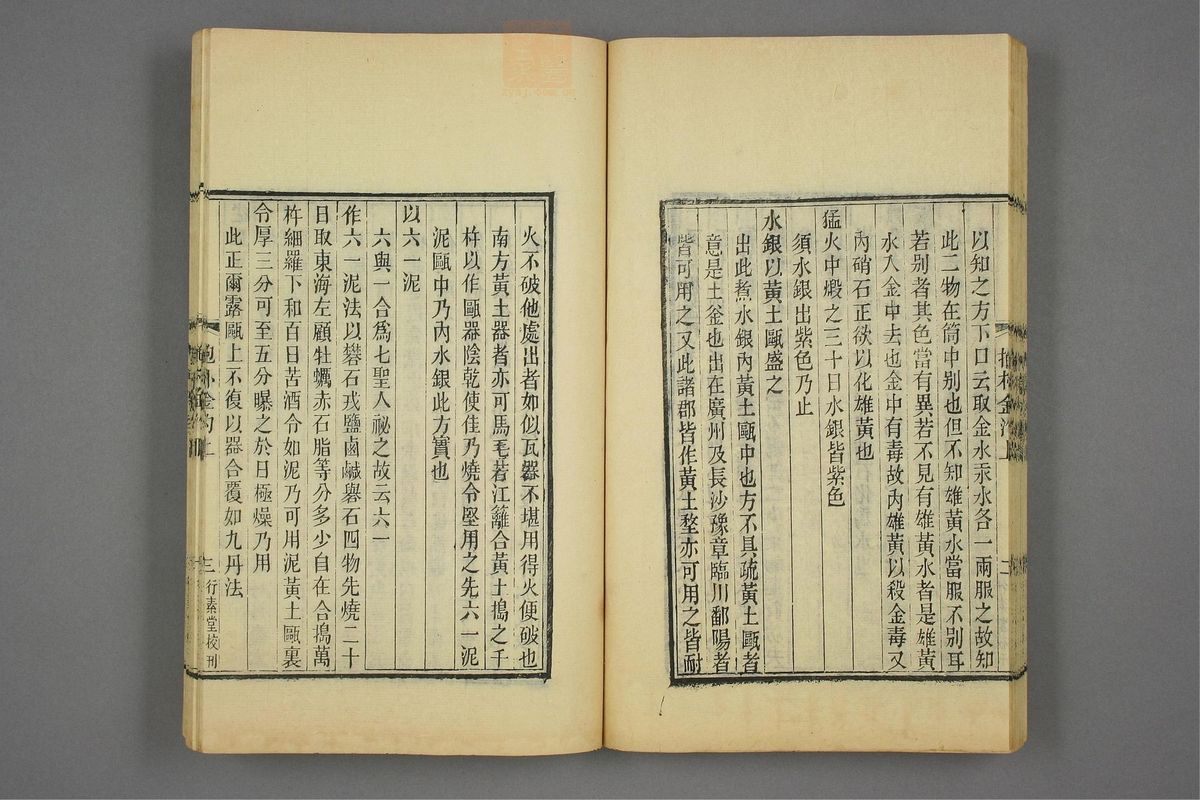 以知之方下口云取金水汞水各一兩服之故知
此二物在筒中別也但不知雄黃水當服不別耳
若別者其色當有異若不見有雄黃水者是雄黃
水入金中去也金中有毒故內雄黃以殺金毒又
內硝石正欲以化雄黃也
猛火中煅之三十日水銀皆紫色
須水銀出紫色乃止
水銀以黃土甌盛之
出此煑水銀內黃土甌中也方不具疏黃土甌者
意是土釜也出在廣州及長沙豫章臨川鄱陽者
皆可用之又此諸郡皆作黃土堥亦可用之皆耐
二
火不破他處出者如似瓦器不堪用得火便破也
南方黃土器者亦可馬毛若江籬合黃土搗之千
杵以作甌器陰乾使佳乃燒令堅用之先六一泥
泥甌中乃內水銀此方實也
以六一泥
六與一合爲七聖人祕之故云六一
作六一泥法以礬石戎鹽鹵鹹礜石四物先燒二十
日取東海左顧牡蠣赤石脂等分多少自在合搗萬
杵細羅下和百日苦酒令如泥乃可用泥黃土甌裏
令厚三分可至五分曝之於日極燥乃用
此正爾露甌上不復以器合覆如九丹法
三 行素堂校刊